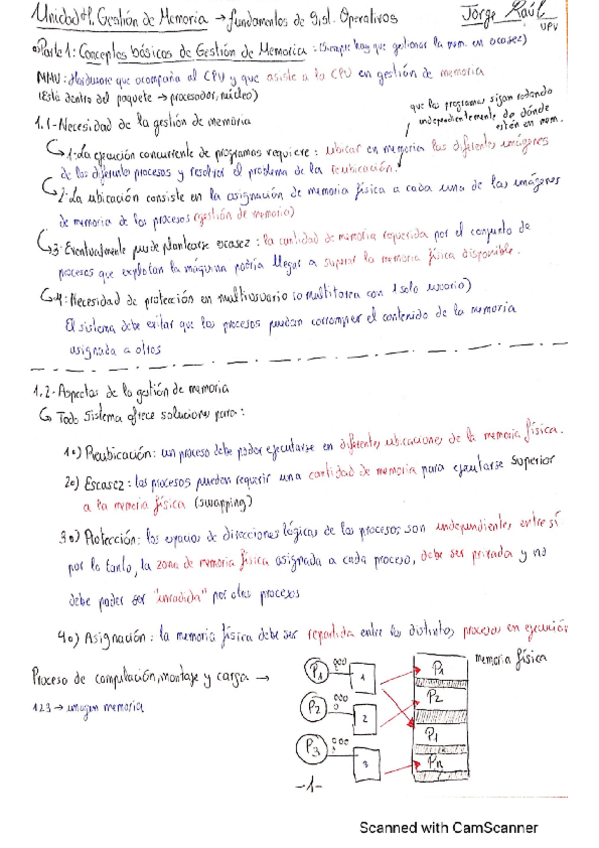 Unidad 4. Gestión de Memoria → fundamentos de Sist. Operativos
Jorge Raúl
UPV
Parte 1: Conceptos básicos de Gestión de Memoria: (Siempre hay que gestionar la mem. en escasez)
MMU: Hardware que acompaña al CPU y que asiste a la CPU en gestión de memoria
(Está dentro del paquete → procesador, núcleo)
que los programas sigan rodando
independientemente de dónde
estén en mem.
1.1-Necesidad de la gestión de memoria
1: La ejecución concurrente de programas requiere: ubicar en memoria las diferentes imágenes
de los diferentes procesos y resolver el problema de la reubicación.
2: La ubicación consiste en la asignación de memoria física a cada una de las imágenes
de memoria de los procesos (gestión de memoria)
3: Eventualmente puede plantearse escasez: la cantidad de memoria requerida por el conjunto de
procesos que explotan la máquina podría llegar a superar la memoria física disponible.
4: Necesidad de protección en multiusuario (o multitarea con 1 solo usuario)
El sistema debe evitar que los procesos puedan corromper el contenido de la memoria
asignada a otros
1.2-Aspectos de la gestión de memoria
Todo Sistema ofrece soluciones para:
1o) Reubicación: un proceso debe poder ejecutarse en diferentes ubicaciones de la memoria física.
2o) Escasez: los procesos puedan requerir una cantidad de memoria para ejecutarse superior
a la memoria física (swapping)
3o) Protección: los espacios de direcciones lógicas de los procesos son independientes entre sí
por lo tanto, la zona de memoria física asignada a cada proceso, debe ser privada y no
debe poder ser "invadida" por otros procesos
4o) Asignación: la memoria física debe ser repartida entre los distintos procesos en ejecución
Proceso de compilación, montaje y carga →
123 → imagen memoria
memoria física
P1 1 P1
P2 2 P2
P1
P3 3 Pn
-1-
Scanned with CamScanner